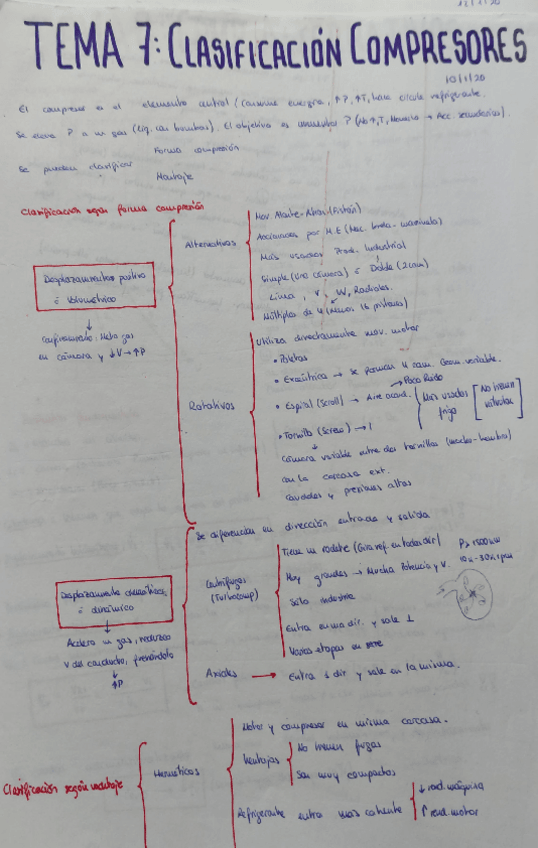 TEMA 7: CLASIFICACIÓN COMPRESORES
10/1/20
El compresor es el elemento central (consume energía, ↑P, ↑T, hace circular refrigerante.
Se eleva P a un gas (líq. con bombas). El objetivo es aumentar P (No ↑T, → Acc. secundarios).
Se pueden clasificar
Forma compresión
Montaje
Clasificación según forma compresión
Desplazamiento positivo
ó Volumétrico
Confinamiento. Meto gas
en cámara y ↓V → ↑P
Alternativos
Mov Alante-Atrás (Pistón)
Accionados por M.E (Mec. biela-manivela)
Más usados Prod. Industrial
Simple (una cámara) ó Doble (2 cam)
Línea, V, W, Radiales.
Múltiplos de 4 (Menos 16 pistones)
Rotativos
Utiliza directamente mov. motor
• Paletas
• Excéntrica → Se forman 4 cam. Geom. variable.
• Espiral (Scroll) → Aire acond.
→ Poco Ruido
Más usados
frigo
No tienen
válvulas
• Tornillo (Screw) →
Cámara variable entre dos tornillos (macho-hembra)
con la carcasa ext.
Caudales y presiones altas
Desplazamiento cinemático
ó dinámico
Acelero un gas, reduzco
v del conducto, frenándolo
↑P
Se diferencian en dirección entrada y salida
Centrífugos
(Turbocomp)
Tiene un rodete (Gira ref. en todas dir)
Muy grandes → Mucha Potencia y V.
Sólo industria
Entra en una dir. y sale ⊥
Varias etapas en serie
P > 1500 kW
10k-30k rpm
Axiales → Entra 1 dir y sale en la misma.
Clasificación según montaje
Herméticos
Motor y compresor en misma carcasa.
Ventajas
No tienen fugas
Son muy compactos
Refrigerante entra mas caliente
↓ rend. máquina
↑ rend. motor